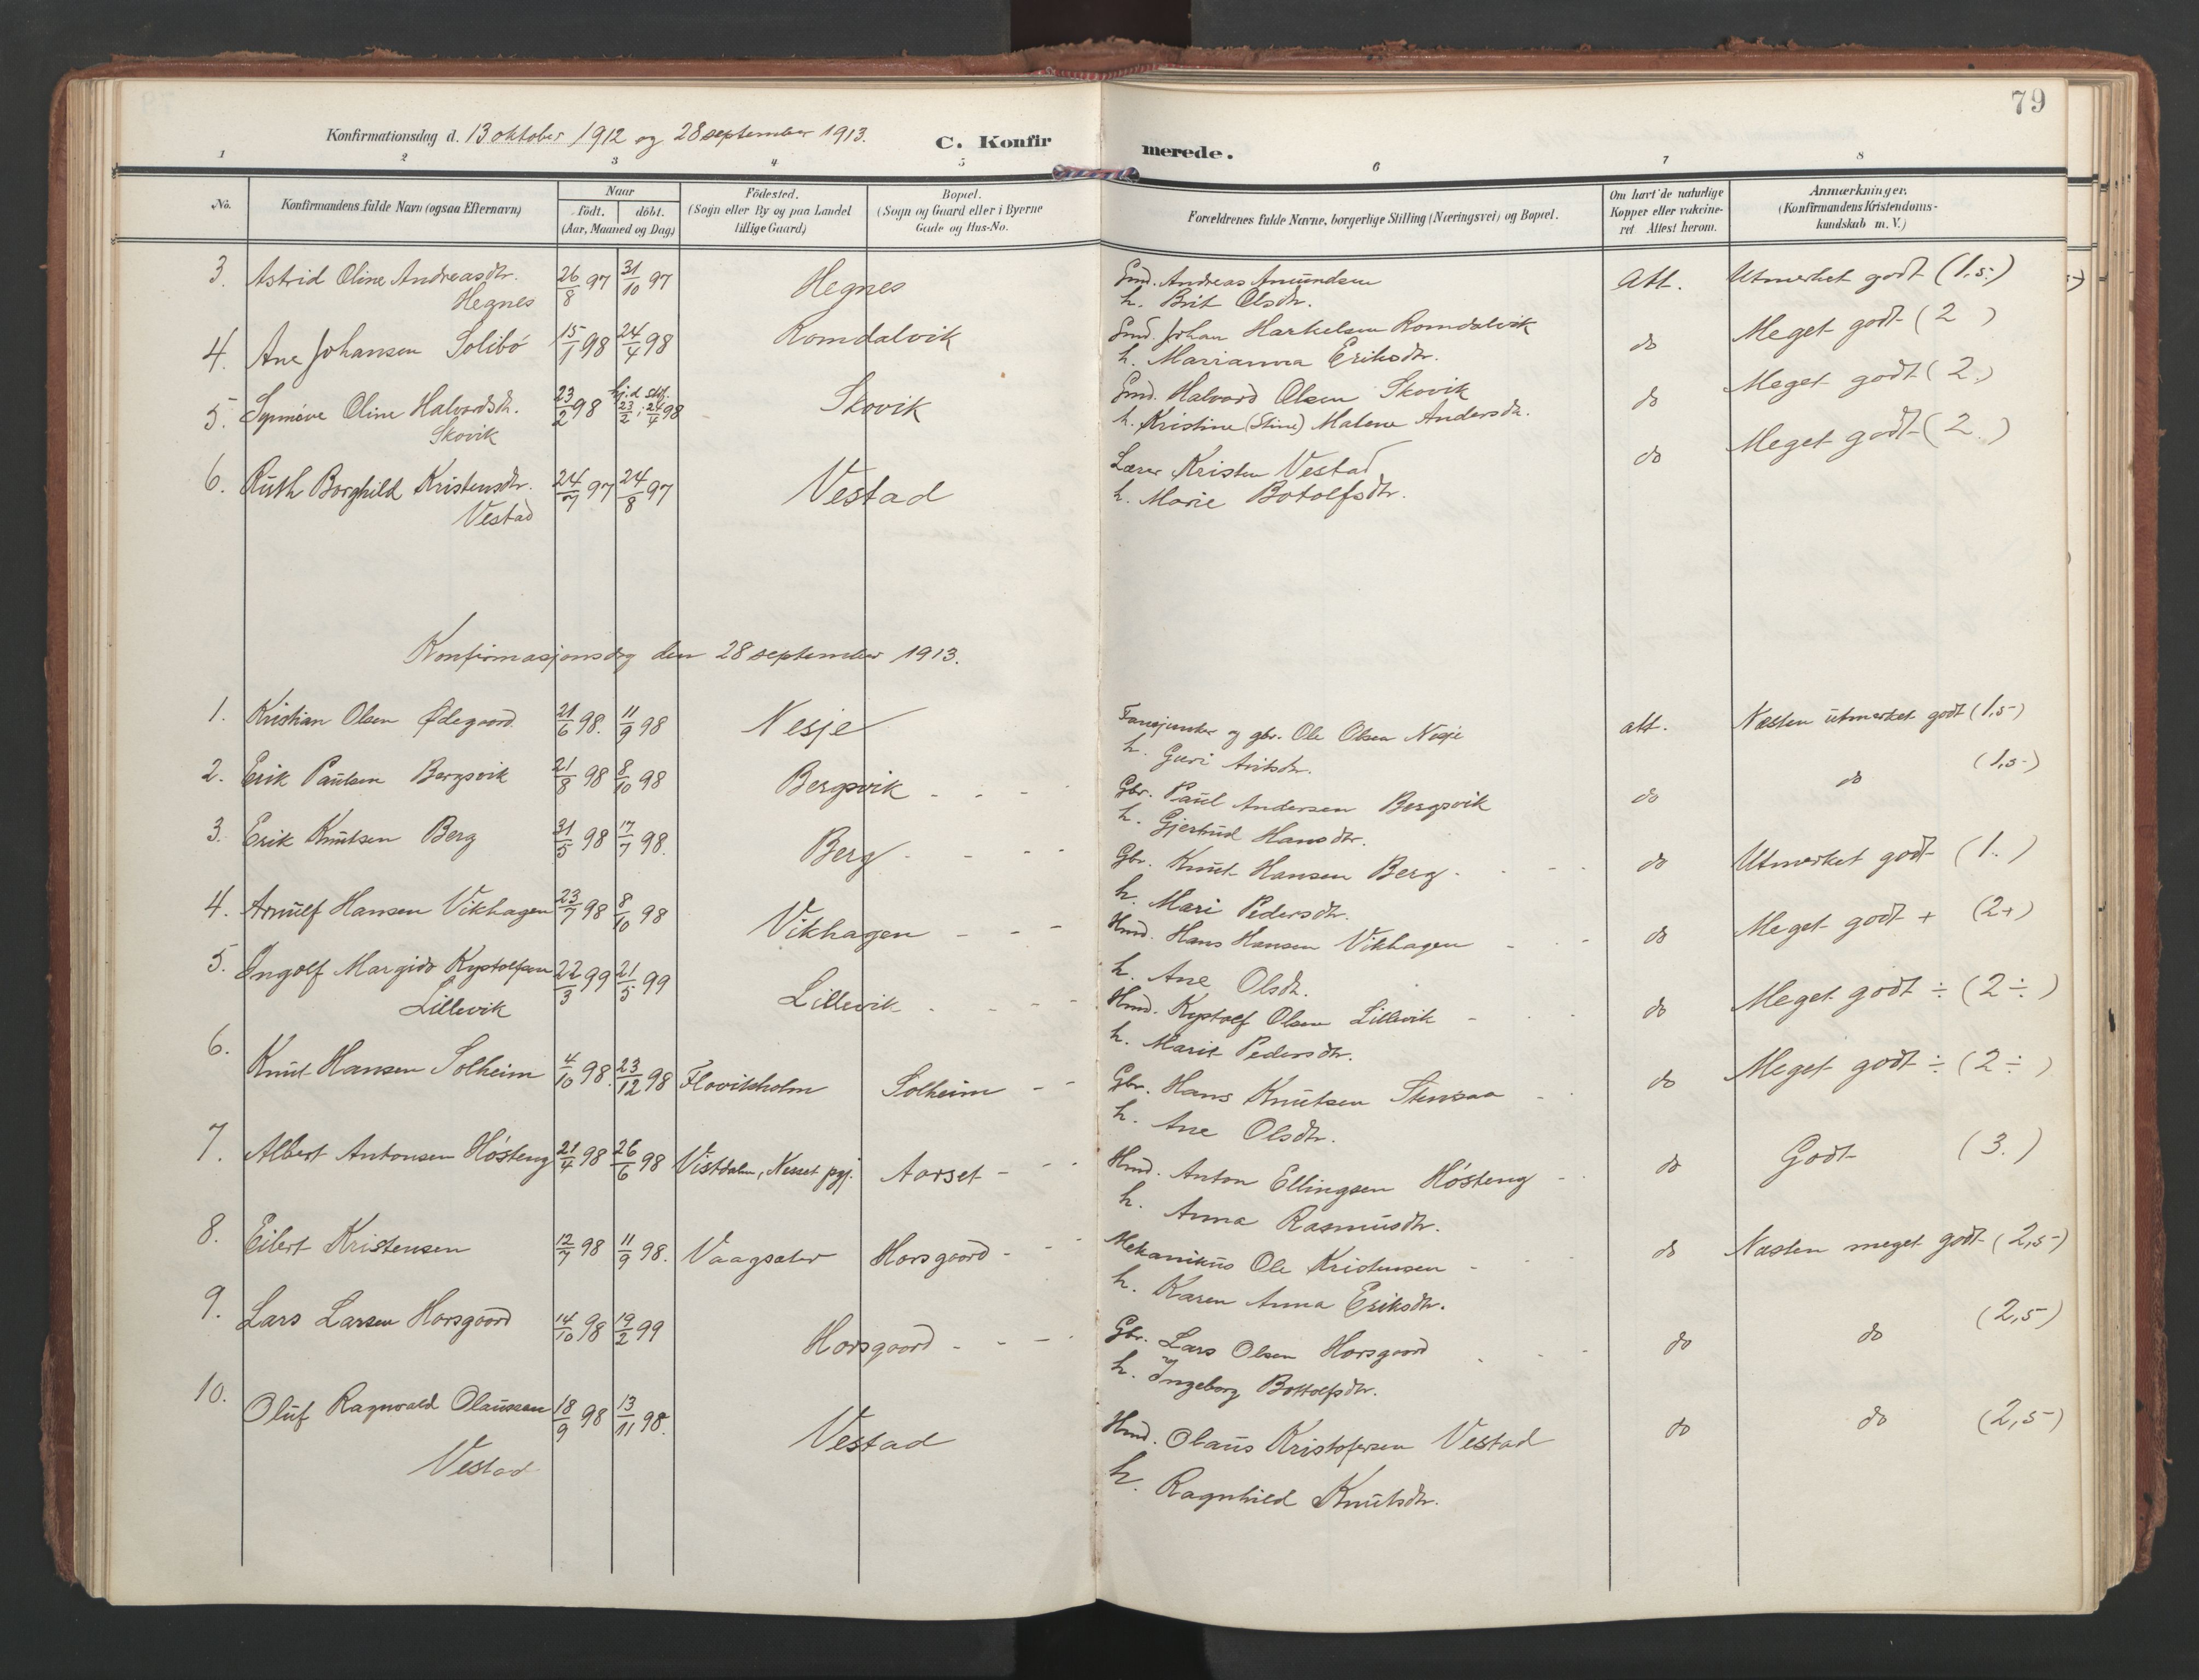 79
Konfirmationsdag d. 13 oktober 1912 og 28 september 1913. C. Konfirmerede.
1 2 3 4 5 6 7 8
No.
Konfirmandens fulde Navn (ogsaa Efternavn)
Naar
födt. döbt.
(Aar, Maaned og Dag)
Födested.
(Sogn eller By og paa Landet
tillige Gaard)
Bopæl.
(Sogn og Gaard eller i Byerne
Gade og Hus-No.
Forældrenes fulde Navne, borgerlige Stilling (Næringsvei) og Bopæl.
Om havt de naturlige
Kopper eller vakcine-
ret Attest herom.
Anmærkninger.
(Konfirmandens Kristendoms-
kundskab m. V.)
3. Astrid Oline Andreasdtr. 26/8 97 31/10 97 Hegnes Gmd. Andreas Amundsen Att. Utmerket godt (1.5-)
Hegnes h. Brit Olsdtr.
4. Ane Johansen Solibö 15/1 98 24/4 98 Romdalvik Gmd. Johan Romdalvik do Meget godt (2 )
h. Marianna Eriksdtr.
5. Synnöve Oline Halvordsdtr. 23/2 98 23/2 i 24/4 98 Skovik Gmd. Halvord Olsen Skovik do Meget godt (2.)
Skovik h. Kristine (Stine) Malene Andersdtr.
6. Ruth Borghild Kristensdtr. 24/7 97 24/8 97 Vestad Lærer Kristen Vestad do Meget godt (2.)
Vestad h. Marie Botolfsdtr.
Konfirmasjonsdag den 28 september 1913.
1. Kristian Olsen Ødegaard 21/6 98. 11/9 98 Nesje Fanejunker og gbr. Ole Olsen Nesje att. Næsten utmerket godt (1,5-)
h. Guri
2. Erik Paulsen Bergsvik 21/8 98 8/10 98 Bergsvik - - - Gbr. Paul Andersen Bergsvik do do (1,5-)
h. Gjertrud Hansdtr.
3. Erik Knutsen Berg 31/5 98 17/7 98. Berg - - - - Gbr. Knut Hansen Berg - do Utmerket godt (1.)
h. Mari Pedersdtr.
4. Arnulf Hansen Vikhagen 23/7 98 8/10 98 Vikhagen - - - Hmd. Hans Hansen Vikhagen - - do Meget godt + (2+)
h. Ane Olsdtr.
5. Ingolf Margido Kystolfsen 22/3 99 21/5 99 Lillevik - - - Hmd. Kystolf Olsen Lillevik - - do Meget godt ÷ (2÷.)
Lillevik h. Marit Pedersdtr.
6. Knut Hansen Solheim 4/10 98. 23/12 98 Flovikholm Solheim - - Gbr. Hans Knutsen Stensaa - do Meget godt ÷ (2÷)
h. Ane Olsdtr.
7. Albert Antonsen Hósteng 21/4 98 26/6 98 Vistdalen, Nesset pgj. Aarset - - Hmd. Anton Ellingsen Hósteng - do Godt (3.)
h. Anna Rasmusdtr.
8. Eilert Kristensen 12/7 98 11/9 98. Vaagsater Horsgaard - - Mekanikus Ole Kristensen - do Næsten meget godt (2,5-)
h. Karen Anna Eriksdtr.
9. Lars Larsen Horsgaard 14/10 98 19/2 99 Horsgaard - - - Gbr. Lars Olsen Horsgaard - - do do (2,5)
h. Ingeborg Bottolfsdtr.
10. Oluf Ragnvald Olaussen 18/9 98 13/11 98. Vestad Hmd. Olaus Kristofersen Vestad do do (2,5-)
Vestad h. Ragnhild Knutsdtr.